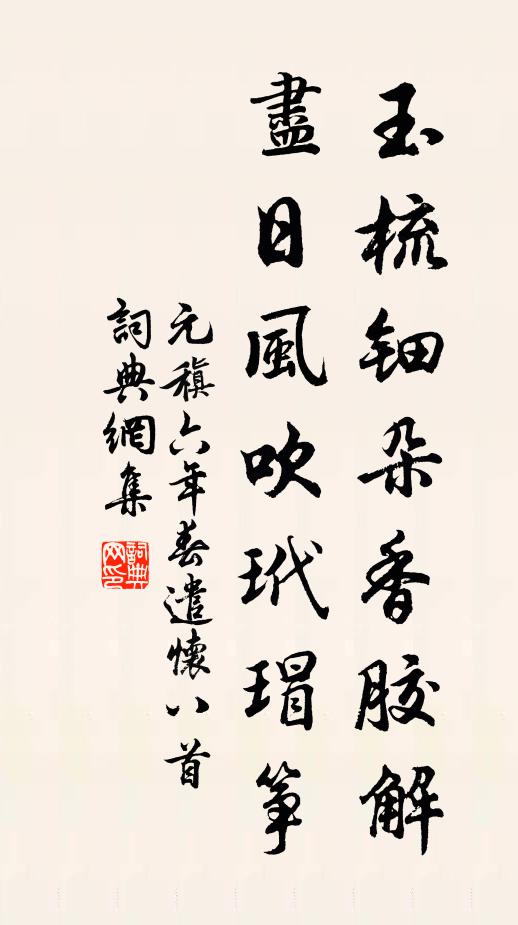 玉梳鈿朵香膠解
盡日風吹玳瑁箏
元稹六年春遣懷八首
詞典網集
詞典网印